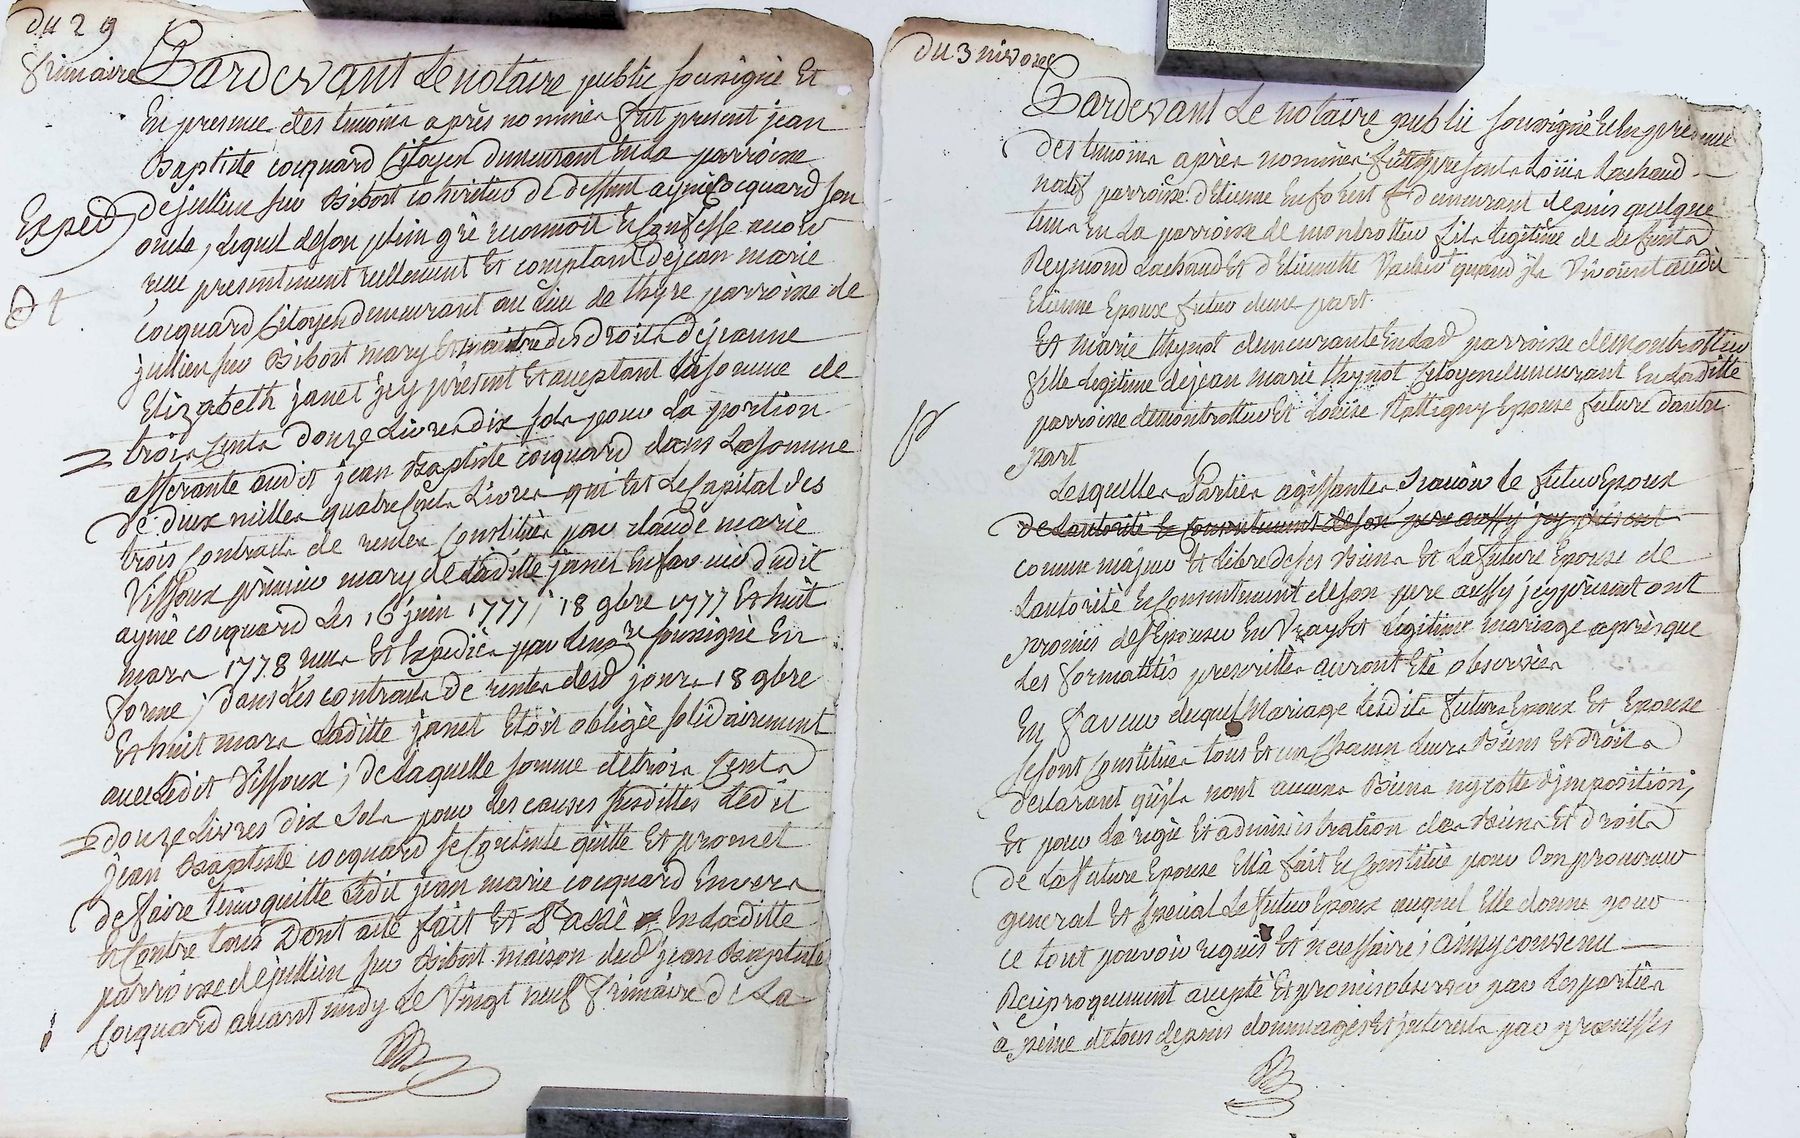 du 29
frimaire
Pardevant Le notaire public soussigné Et
En presence des temoins après nommés fut present jean
Baptiste cocquard Citoyen demeurant En la parroisse
de jullien sur Bibost cohéritier de deffunt aymé Cocquard son
Exped
oncle, Lequel de son plein gré reconnoit Et Confesse avoir
reçu presentement reellement Et comptant de jean marie
cocquard Citoyen demeurant au lieu de thyre parroisse de
jullien sur Bibost mary Et maitre des droits de jeanne
Elizabeth janet jcy présent Et acceptant la somme de
trois Cents douze Livres dix sols pour La portion
afferante audit jean Baptiste cocquard dans La somme
de deux milles quatre Cents Livres qui Est Le Capital des
trois Contracts de rentes Constitués par claude marie
Vissoux prémier mary de Laditte janet En faveur dudit
aymé cocquard Les 16 juin 1777, 18 9bre 1777 Et huit
mars 1778 reçus Et Expediés par Le no.re soussigné En
forme; dans Les contracts de rentes desd jours 18 9bre
Et huit mars Laditte janet Etoit obligée solidairement
avec Ledit Vissoux; de Laquelle somme de trois Cents
douze Livres dix sols pour Les causes susdittes Ledit
jean Baptiste cocquard se Contente quitte Et promet
de faire tenir quitte Ledit jean marie cocquard Envers
Et Contre tous Dont acte fait Et Passé En Laditte
parroisse de jullien sur Bibost maison dud jean Baptiste
Cocquard avant midy Le Vingt neuf frimaire de La
du 3 nivose
Pardevant Le notaire public soussigné Et En presence
des temoins après nommés furent presents Loüis Lachaud
natif parroisse d'Etienne En forest demeurant depuis quelque
tems En La parroisse de montrottier fils Legitime de defunts
Reymond Lachaud Et d'Etiennette Vacher quand jls Vivoient audit
Etienne Epoux futur d'une part
Et marie thynot demeurante En lad parroisse de montrottier
fille Legitime de jean marie thynot Citoyen demeurant En Laditte
parroisse de montrottier Et Loüise Rattigny Epouse future d'autre
part
Lesquelles Parties agissantes Sçavoir Le futur Epoux
de Lautorité Et Consentement de son pere aussy jcy present
comme majeur Et Libre de ses Biens Et La future Epouse de
Lautorité Et Consentement de son pere aussy jcy présent ont
promis de S'Epouser En Vray Et Légitime mariage après que
Les formalités prescrittes auront Eté observées
En faveur duquel Mariage Lesdits futurs Epoux Et Epouse
se sont Constitués tous Et un Chacun Leurs Biens Et droits
declarant qu'jls n'ont aucuns Biens ny cotte d'jmposition;
Et pour La regie Et administration des Biens Et droits
de La future Epouse Elle a fait Et Constitué pour son procureur
general Et special Le futur Epoux auquel Elle donne pour
ce tout pouvoir requis Et necessaire; ainsy convenu
Reciproquement accepté Et promis observer par Les parties
à peine de tous depens dommages Et jnterests par promesses